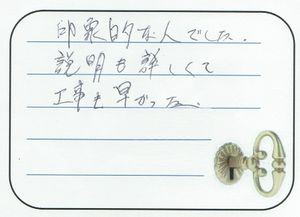 印象的な人でした。
説明も詳しくて
工事も早かった。